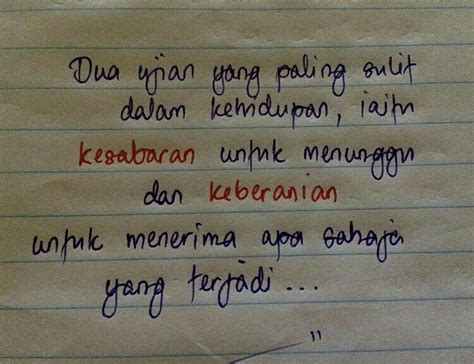 Dua ujian yang paling sulit
dalam kehidupan, iaitu
kesabaran untuk menunggu
dan keberanian
untuk menerima apa sahaja
yang terjadi ...
"